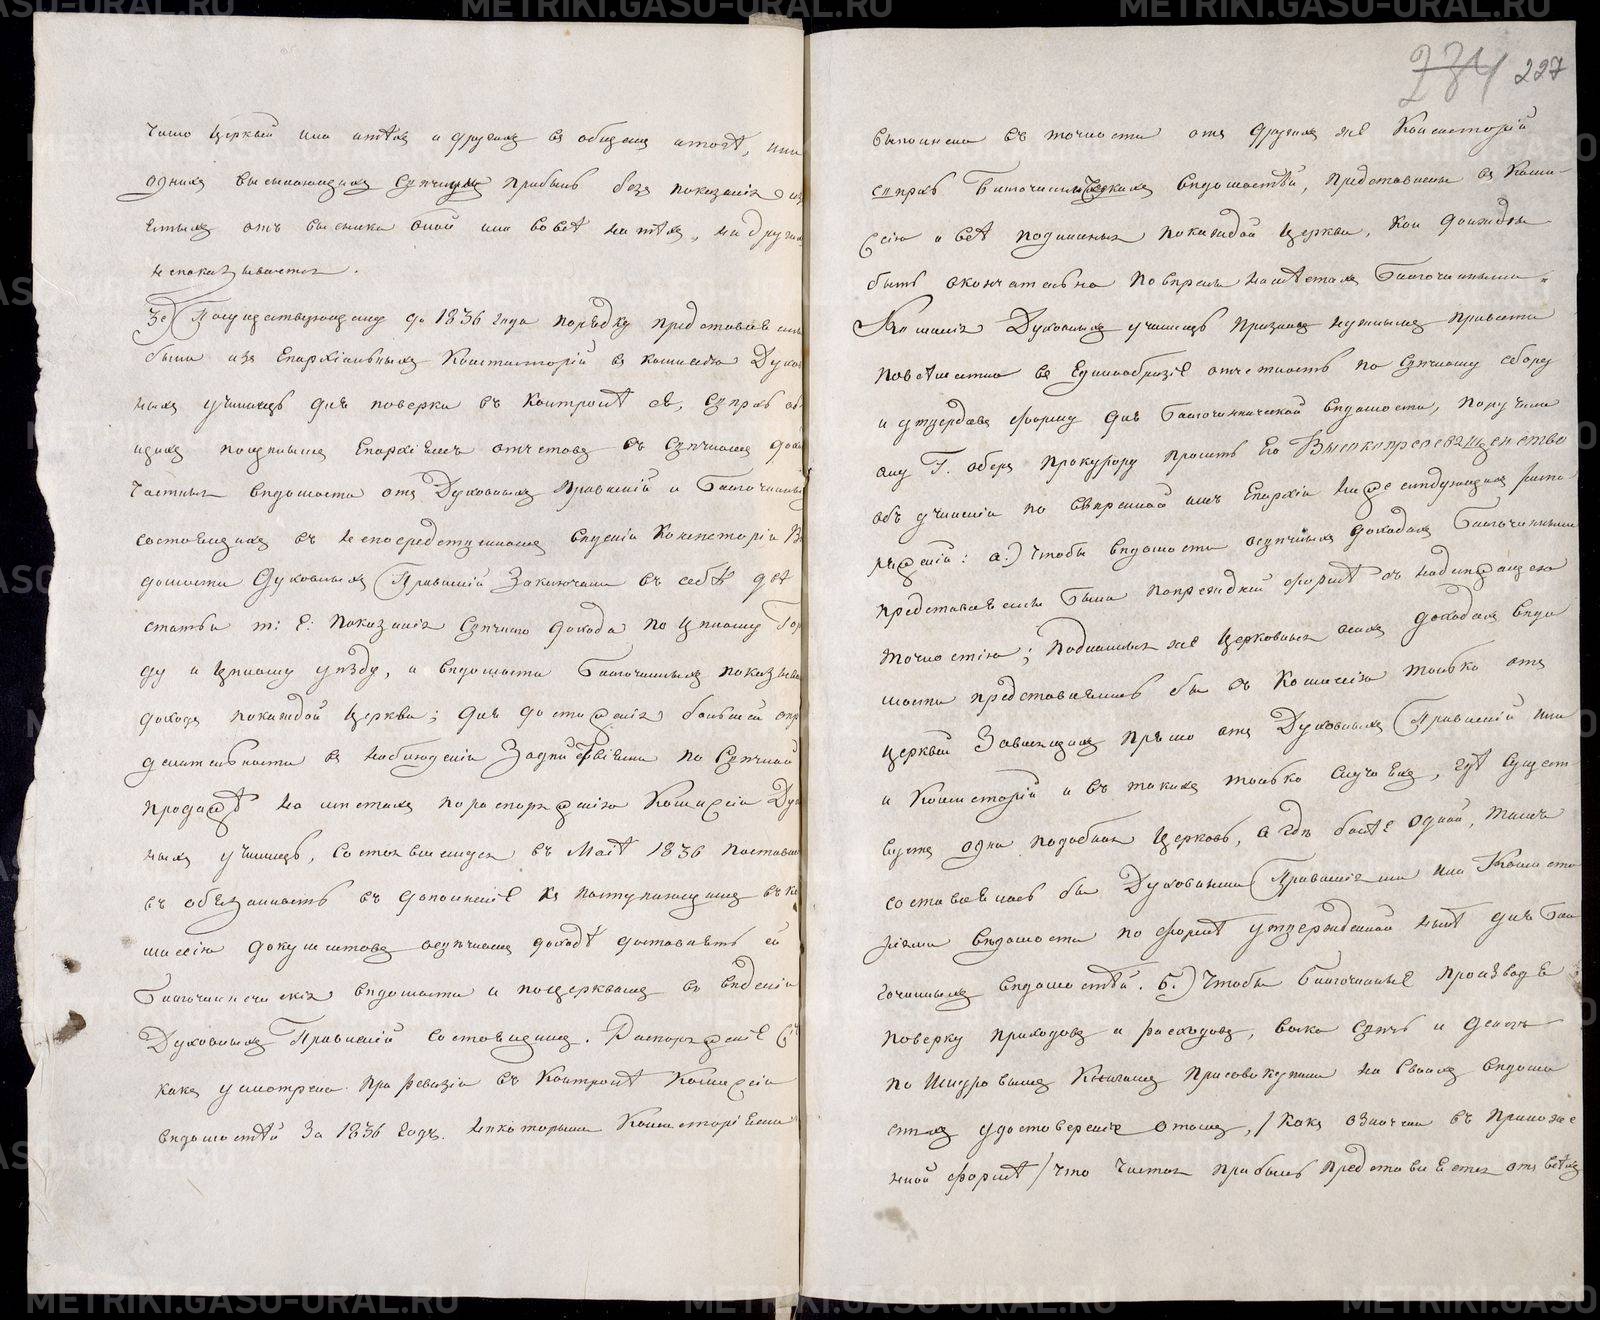 число Церквей или итѣхъ и другихъ въ общемъ итогѣ, или
однихъ высылающихъ свѣчную прибыль безъ показанія из
отъ высылки оной или вовсѣ на тѣхъ, на другихъ
непоказывается.
3е) Посуществующему до 1836 года порядку представляемы
были изъ Епархіальныхъ Консисторій въ комиссію Духов
ныхъ училищъ для поверки въ Контролѣ ея, сверхъ об
щихъ поцѣлымъ Епархіямъ отчетовъ о свѣчномъ доходѣ
частныя вѣдомости отъ Духовныхъ Правленій и Благочинныхъ
состоящихъ въ непосредственномъ вѣденіи Консисторіи Вѣ
домости Духовныхъ Правленій Заключали въ себѣ двѣ
статьи т: е: показанія свѣчнаго дохода по цѣлому Горо
ду и цѣлому уѣзду, а вѣдомости Благочинныхъ показывали
доходъ покаждой Церкви; для достиженія большей опре
делительности въ наблюденіи За дѣйствіями по Свѣчной
продажѣ на мѣстахъ пораспоряженію Комиссіи Духов
ныхъ училищъ, состоявшемуся въ Маѣ 1836 поставлено
въ обязанность въ дополненіе къ поступающимъ въ ко
миссію документовъ освѣчномъ доходѣ доставлять ей
Благочинническія вѣдомости и поцерквамъ въ вѣденіи
Духовныхъ Правленій состоящимъ. Распоряженіе сіе
какъ усмотрено при ревизіи въ Контролѣ Комиссіи
вѣдомостей За 1836 годъ. Нѣкоторыми Консисторіями
227
выполнено въ точности отъ другихъ же Консисторій
сверхъ Благочинническихъ вѣдомостей, представлены въ Коми-
сію и всѣ подлинныя покаждой Церкви, кои должны
быть окончательно повѣрены намѣстахъ Благочинными.
Комисія Духовныхъ училищъ признавъ нужнымъ привести
повсѣместно въ Единообразіе отчетность по свѣчному сбору
и утвердивъ форму для Благочиннической вѣдомости, поручила
ему Г. оберъ Прокурору просить Его Высокопреосвященство
объ учиненіи по ввѣренной имъ Епархіи нижеследующихъ распо-
ряженій: а.) Чтобы вѣдомости освѣчныхъ доходахъ Благочинными
представляемы были попрежней формѣ съ надлежащею
точностію; подлинныя же Церковныя осихъ доходахъ вѣдо
мости представлялись бы въ Комиссію только отъ
церквей Зависящихъ прямо отъ Духовныхъ Правленій или
и Консисторій и въ такихъ только случаяхъ, гдѣ сущест-
вуетъ одна подобная Церковь, а гдѣ болѣе одной, тамъ
составлялись бы Духовными Правленіями или Консисто
ріями вѣдомости по формѣ утвержденной нынѣ для Бла
гочинныхъ вѣдомостей. б.) Чтобы Благочинные производя
поверку приходовъ и расходовъ, воска свѣчъ и денегъ
по Шнуровымъ Книгамъ присовокупляли на своихъ вѣдомо
стяхъ удостовереніе отомъ, /какъ означено въ приложе
нной формѣ/ что чистая прибыль представляется отъ всѣхъ